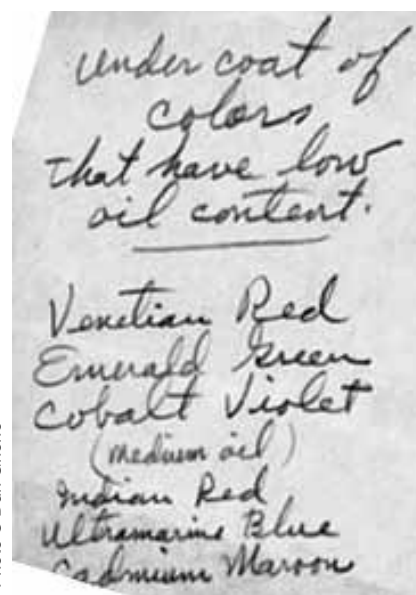 under coat of
colors
that have low
oil content.
Venetian Red
Emerald Green
Cobalt Violet
(medium oil)
Indian Red
Ultramarine Blue
Cadmium Maroon